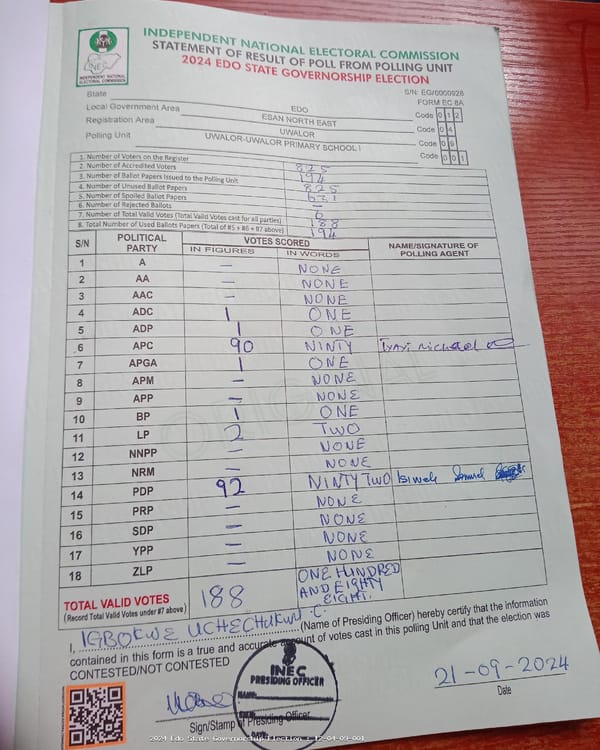 INDEPENDENT NATIONAL ELECTORAL COMMISSION
STATEMENT OF RESULT OF POLL FROM POLLING UNIT
2024 EDO STATE GOVERNORSHIP ELECTION
INEC
INDEPENDENT NATIONAL ELECTORAL COMMISSION
S/N: EG/0000928
FORM EC 8A
State EDO Code 0 1 2
Local Government Area ESAN NORTH EAST Code 0 4
Registration Area UWALOR Code 0 9
Polling Unit UWALOR-UWALOR PRIMARY SCHOOL I Code 0 0 1
1. Number of Voters on the Register 825
2. Number of Accredited Voters 194
3. Number of Ballot Papers Issued to the Polling Unit 825
4. Number of Unused Ballot Papers 631
5. Number of Spoiled Ballot Papers —
6. Number of Rejected Ballots 6
7. Number of Total Valid Votes (Total Valid Votes cast for all parties) 188
8. Total Number of Used Ballots Papers (Total of #5 + #6 + #7 above) 194
S/N POLITICAL PARTY VOTES SCORED NAME/SIGNATURE OF POLLING AGENT
IN FIGURES IN WORDS
1 A — NONE
2 AA — NONE
3 AAC — NONE
4 ADC 1 ONE
5 ADP 1 ONE
6 APC 90 NINTY michael
7 APGA 1 ONE
8 APM — NONE
9 APP — NONE
10 BP 1 ONE
11 LP 2 TWO
12 NNPP — NONE
13 NRM — NONE
14 PDP 92 NINTY TWO
15 PRP — NONE
16 SDP — NONE
17 YPP — NONE
18 ZLP — NONE
TOTAL VALID VOTES 188 ONE HUNDRED AND EIGHTY EIGHT.
(Record Total Valid Votes under #7 above)
I, IGBOKWE UCHECHUKWU .C. (Name of Presiding Officer) hereby certify that the information
contained in this form is a true and accurate account of votes cast in this polling Unit and that the election was
CONTESTED/NOT CONTESTED
INEC
PRESIDING OFFICER
NAME:
DATE:
Sign/Stamp of Presiding Officer
21-09-2024
Date
ORIGINAL
2024 Edo State Governorship Election - 12-04-09-001